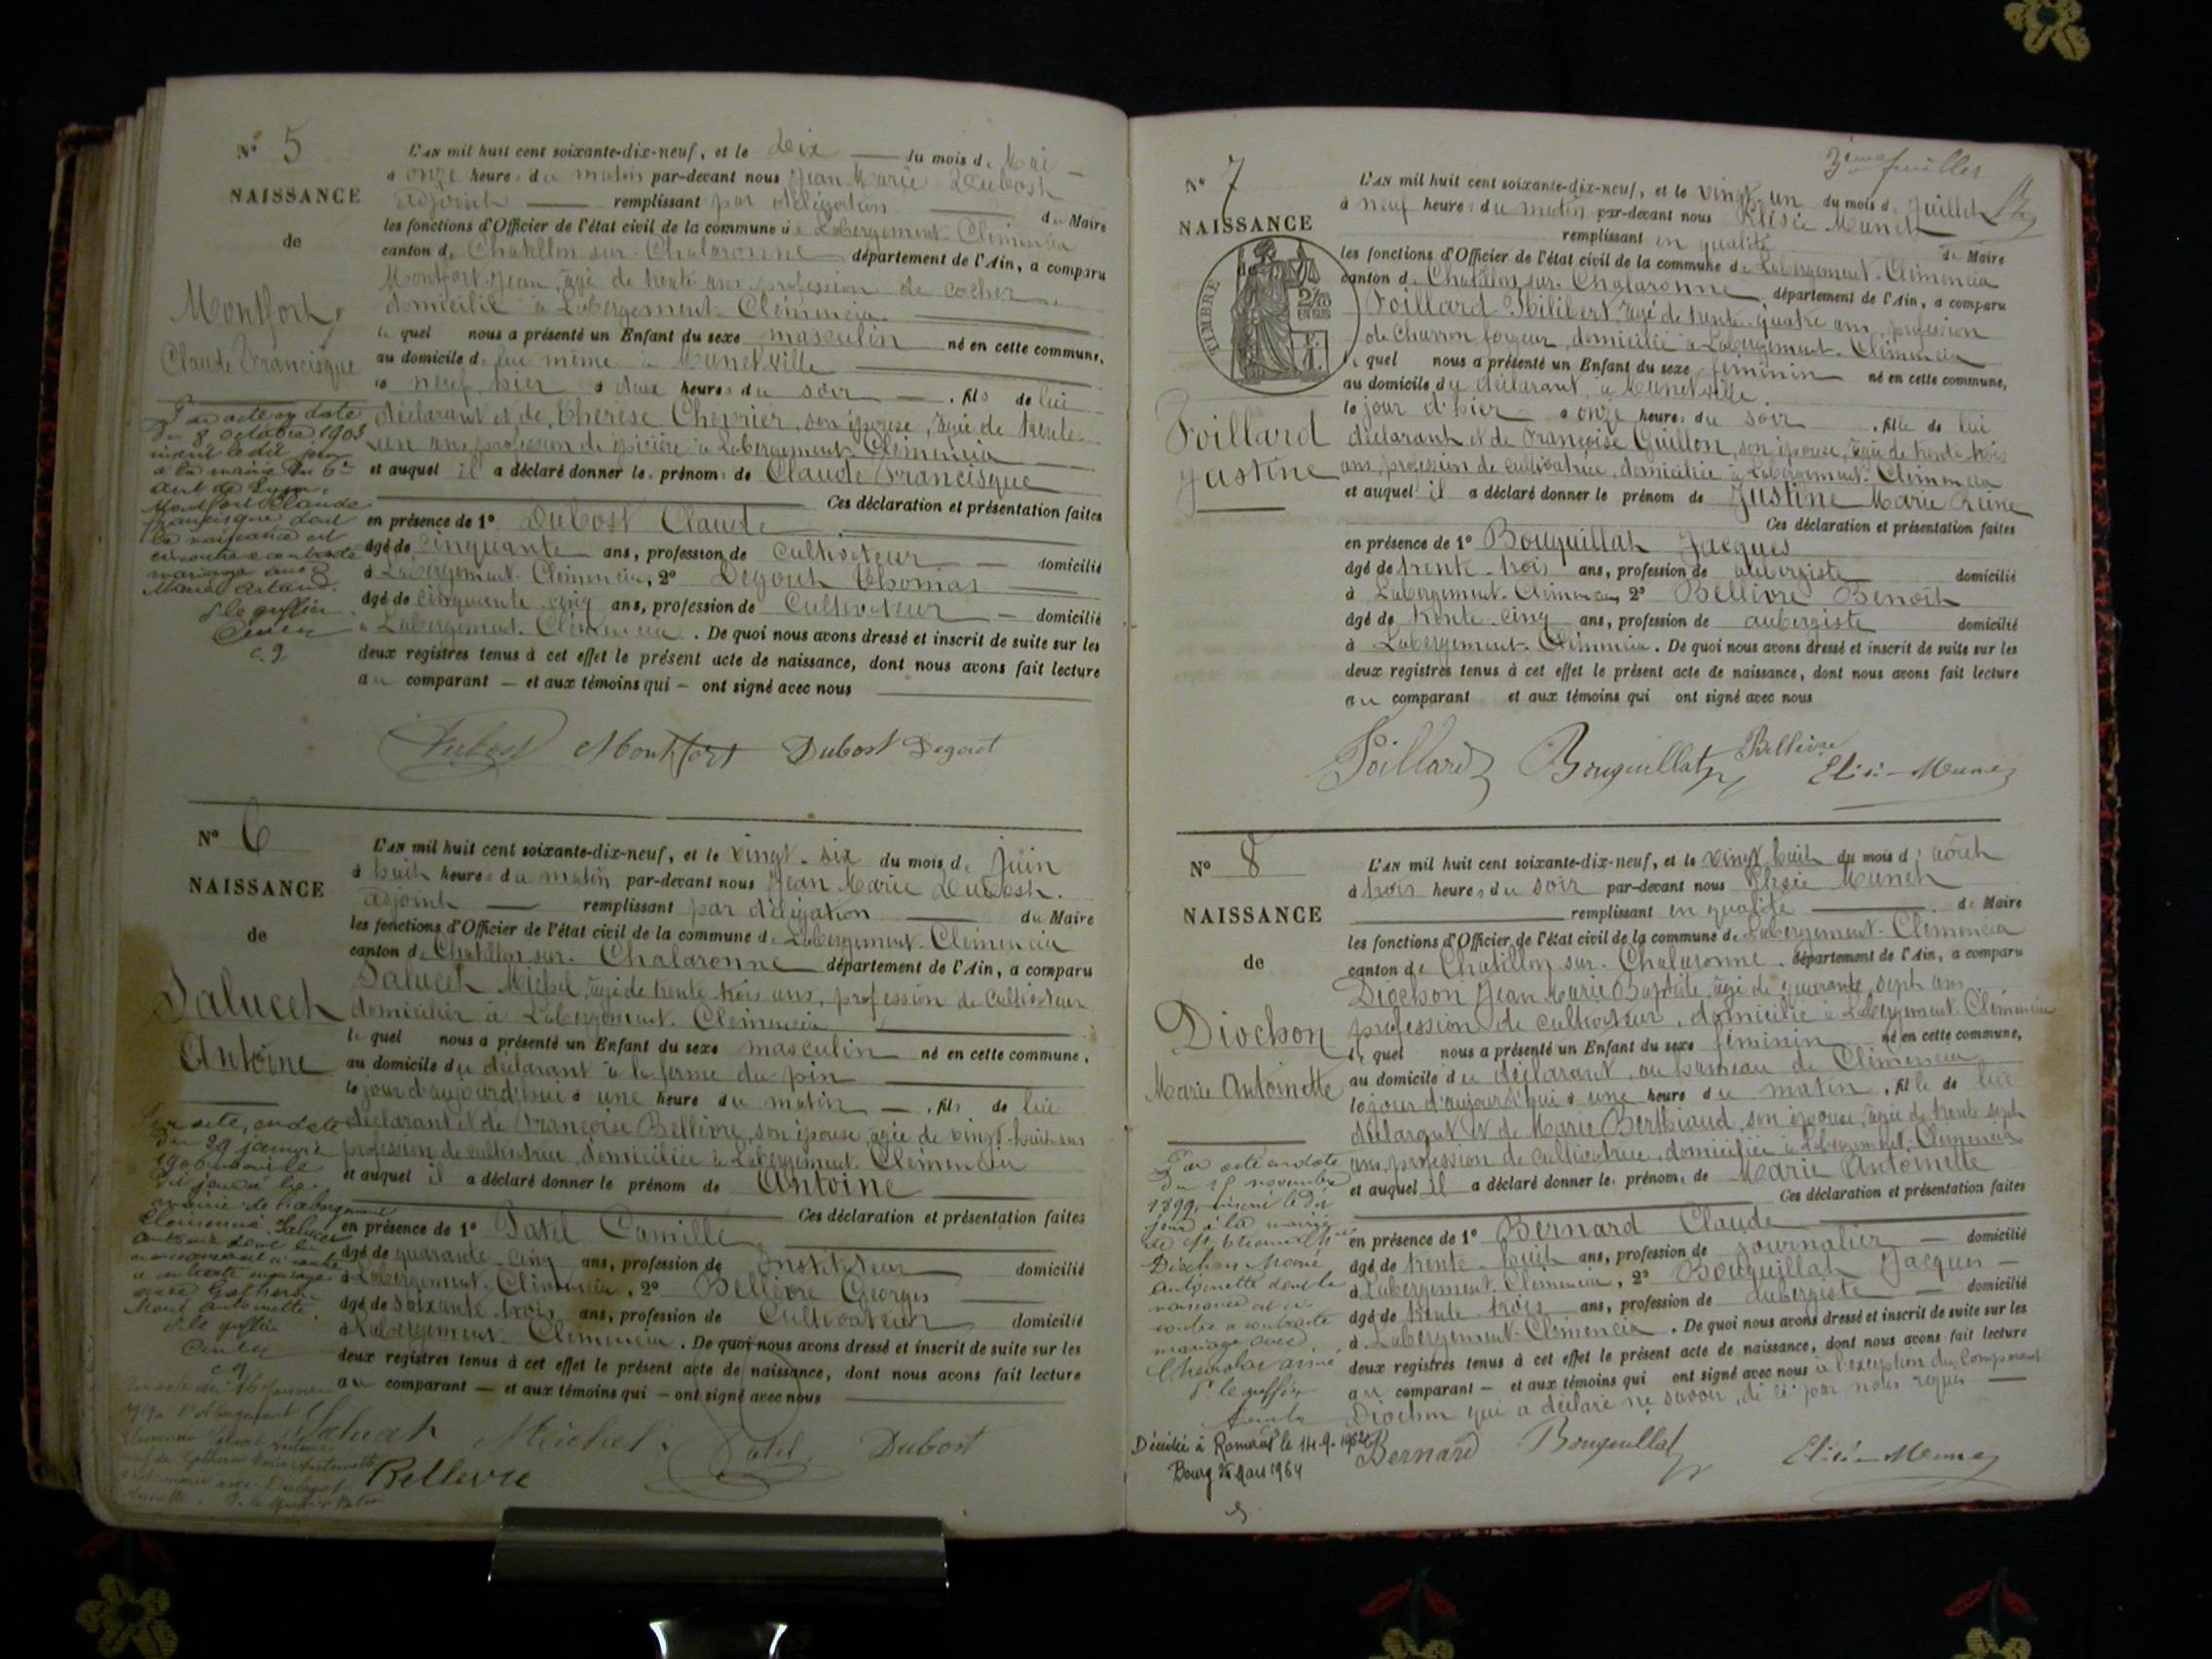 N° 5
NAISSANCE
de
Montfort
Claude Francisque
Par acte en date
du 8 octobre 1903
inscrit le dit jour
à la mairie du 6e
art de Lyon,
Montfort Claude
francisque dont
la naissance est
ci-contre a contracté
mariage avec
Marie
P. le greffier
c. g.
L'AN mil huit cent soixante-dix-neuf, et le Dix du mois de Mai
à onze heures du matin par-devant nous Jean Marie Dubost
adjoint remplissant par délégation du Maire
les fonctions d'Officier de l'état civil de la commune de Labergement-Clémencia
canton de Chatillon-sur-Chalaronne département de l'Ain, a comparu
Montfort Jean, âgé de trente ans profession de cocher
domicilié à Labergement-Clémencia
lequel nous a présenté un Enfant du sexe masculin né en cette commune,
au domicile de lui même à Munetville
le neuf, hier à deux heures du soir, fils de lui
déclarant et de Thérèse Chevrier, son épouse, âgée de trente
un ans, profession de épicière à Labergement-Clémencia
et auquel il a déclaré donner les prénoms de Claude Francisque
Ces déclaration et présentation faites
en présence de 1° Dubost Claude
âgé de cinquante ans, profession de cultivateur domicilié
à Labergement-Clémencia, 2° Degout Thomas
âgé de cinquante cinq ans, profession de Cultivateur domicilié
à Labergement-Clémencia. De quoi nous avons dressé et inscrit de suite sur les
deux registres tenus à cet effet le présent acte de naissance, dont nous avons fait lecture
au comparant et aux témoins qui ont signé avec nous
Dubost Montfort Dubost Degout
N° 6
NAISSANCE
de
Salucet
Antoine
Par acte, en date
du 29 janvier
1906 inscrit le
dit jour à la
mairie de Labergement
Clémencia, Salucet
Antoine dont la
naissance est ci-contre
a contracté mariage
avec
Marie Antoinette
P. le greffier
c g
L'AN mil huit cent soixante-dix-neuf, et le vingt-six du mois de Juin
à huit heures du matin par-devant nous Jean Marie Dubost.
adjoint remplissant par délégation du Maire
les fonctions d'Officier de l'état civil de la commune de Labergement-Clémencia
canton de Chatillon-sur-Chalaronne département de l'Ain, a comparu
Salucet Michel, âgé de trente trois ans, profession de cultivateur
domicilié à Labergement-Clémencia
lequel nous a présenté un Enfant du sexe masculin né en cette commune,
au domicile du déclarant à la ferme du pin
le jour d'aujourd'hui à une heure du matin, fils de lui
déclarant et de Françoise Bellivre, son épouse, âgée de vingt-huit ans
profession de cultivatrice, domiciliée à Labergement-Clémencia
et auquel il a déclaré donner le prénom de Antoine
Ces déclaration et présentation faites
en présence de 1° Patel Camille
âgé de quarante-cinq ans, profession de Instituteur domicilié
à Labergement-Clémencia, 2° Bellivre Georges
âgé de soixante-trois ans, profession de Cultivateur domicilié
à Labergement-Clémencia. De quoi nous avons dressé et inscrit de suite sur les
deux registres tenus à cet effet le présent acte de naissance, dont nous avons fait lecture
au comparant et aux témoins qui ont signé avec nous
Salucet Michel Patel Dubost
Bellevre
3ème feuillet
N° 7
NAISSANCE
de
TIMBRE
Foillard
Justine
L'AN mil huit cent soixante-dix-neuf, et le vingt-un du mois de Juillet
à neuf heures du matin par-devant nous Elisée Munet
remplissant en qualité de Maire
les fonctions d'Officier de l'état civil de la commune de Labergement-Clémencia
canton de Chatillon-sur-Chalaronne département de l'Ain, a comparu
Foillard Philibert, âgé de trente-quatre ans, profession
de Charron forgeur, domicilié à Labergement-Clémencia
lequel nous a présenté un Enfant du sexe féminin né en cette commune,
au domicile du déclarant, à Munetville
le jour d'hier à onze heures du soir, fille de lui
déclarant et de Françoise Guillon, son épouse, âgée de trente-trois
ans, profession de cultivatrice, domiciliée à Labergement-Clémencia
et auquel il a déclaré donner le prénom de Justine Marie Reine
Ces déclaration et présentation faites
en présence de 1° Bouquillat Jacques
âgé de trente-trois ans, profession de aubergiste domicilié
à Labergement-Clémencia, 2° Bellivre Benoît
âgé de trente-cinq ans, profession de aubergiste domicilié
à Labergement-Clémencia. De quoi nous avons dressé et inscrit de suite sur les
deux registres tenus à cet effet le présent acte de naissance, dont nous avons fait lecture
au comparant et aux témoins qui ont signé avec nous
Foillard Bouquillat Bellivre Elisée Munet
N° 8
NAISSANCE
de
Diochon
Marie Antoinette
Par acte en date
du 18 novembre
1899, inscrit le dit
jour à la mairie
Diochon Marie
Antoinette dont la
naissance est ci
contre a contracté
mariage avec
P. le greffier
Décédée à Romans le 14.9.1962
Bourg 25 Mars 1964
L'AN mil huit cent soixante-dix-neuf, et le vingt huit du mois d'août
à trois heures du soir par-devant nous Elisée Munet
remplissant en qualité de Maire
les fonctions d'Officier de l'état civil de la commune de Labergement-Clémencia
canton de Chatillon-sur-Chalaronne département de l'Ain, a comparu
Diochon Jean Marie Baptiste, âgé de quarante sept ans
profession de cultivateur, domicilié à Labergement Clémencia
lequel nous a présenté un Enfant du sexe féminin né en cette commune,
au domicile du déclarant, au hameau de Clémencia
le jour d'aujourd'hui à une heure du matin, fille de lui
déclarant et de Marie Berthiaud, son épouse, âgée de trente sept
ans, profession de cultivatrice, domiciliée à Labergement-Clémencia
et auquel il a déclaré donner les prénoms de Marie Antoinette
Ces déclaration et présentation faites
en présence de 1° Bernard Claude
âgé de trente-huit ans, profession de journalier domicilié
à Labergement-Clémencia, 2° Bouquillat Jacques
âgé de trente trois ans, profession de aubergiste domicilié
à Labergement-Clémencia. De quoi nous avons dressé et inscrit de suite sur les
deux registres tenus à cet effet le présent acte de naissance, dont nous avons fait lecture
au comparant et aux témoins qui ont signé avec nous à l'exception du comparant
Diochon qui a déclaré ne savoir, de ce par nous requis
Bernard Bouquillat Elisée Munet